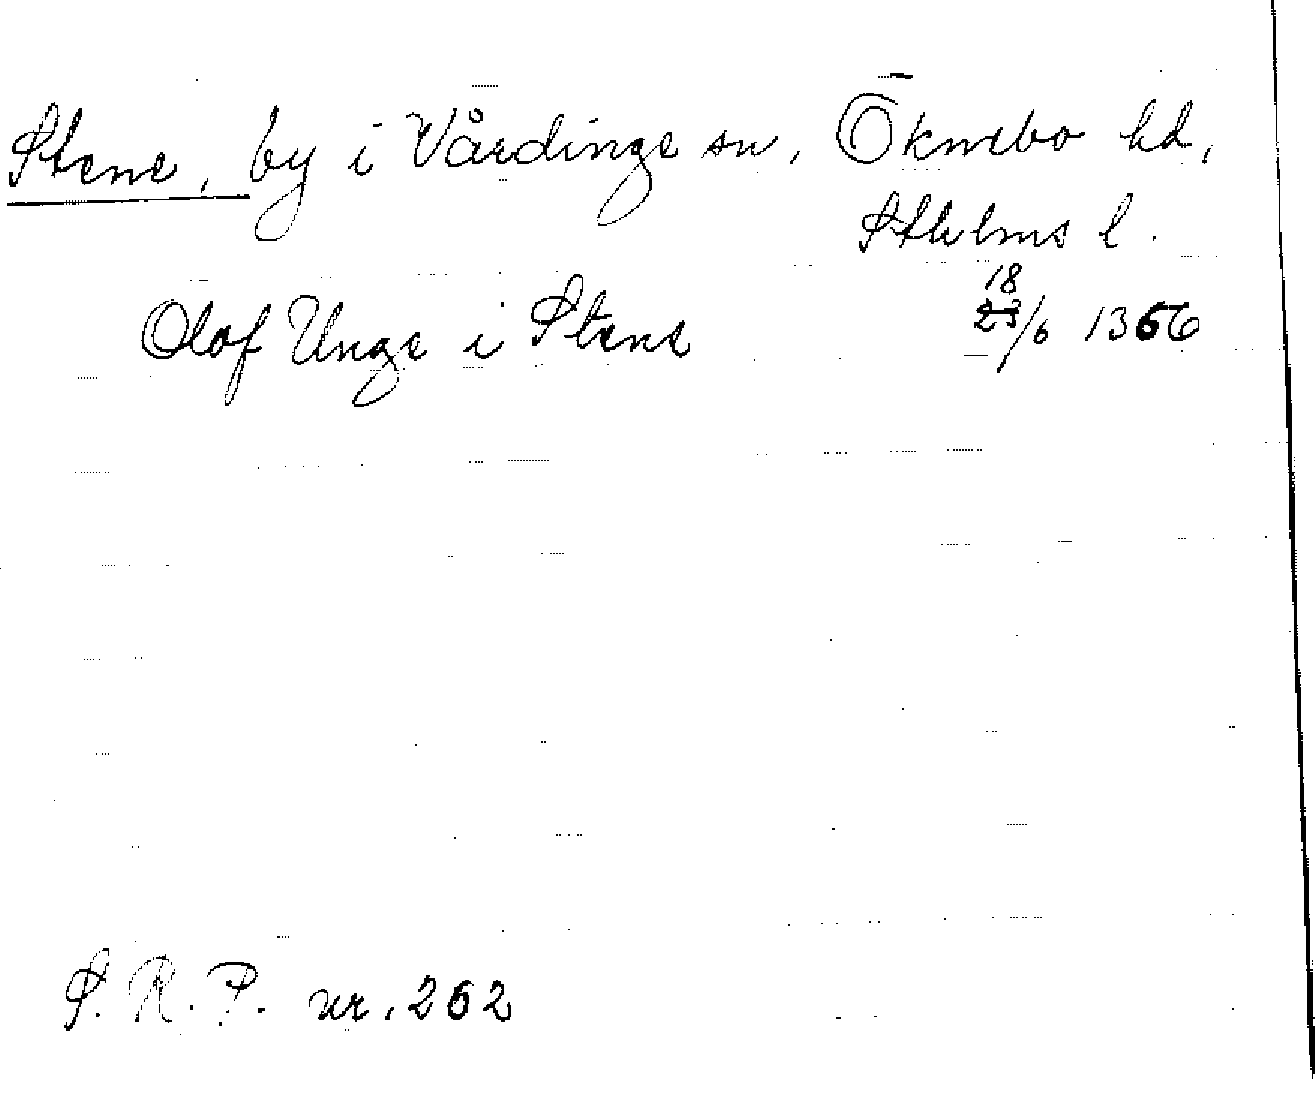 Stene, by i Vårdinge sn, Öknebo hd,
Sthlms l.
Olof Unge i Stene 18
23/6 1366
S. R. P. nr. 262